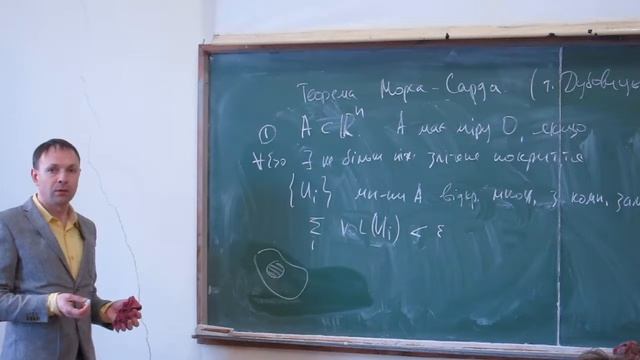 Теорема Морса-Сарда. (т. Дубовиць
① A ⊂ ℝⁿ A має міру 0, якщо
∀ε>0 ∃ не більш ніж зліченне покриття
{Uᵢ} мн-ни A відкр. множ. з комп. зам
∑ᵢ vol(Uᵢ) < ε